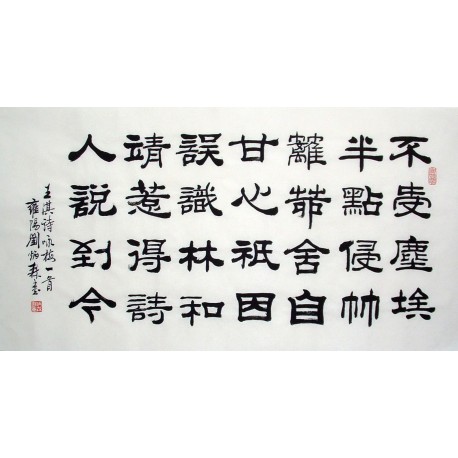 不受塵埃
半點侵竹
籬茆舍自
甘心祇因
誤識林和
靖惹得詩
人說到今
王淇詩詠梅一首
雍陽劉炳森書